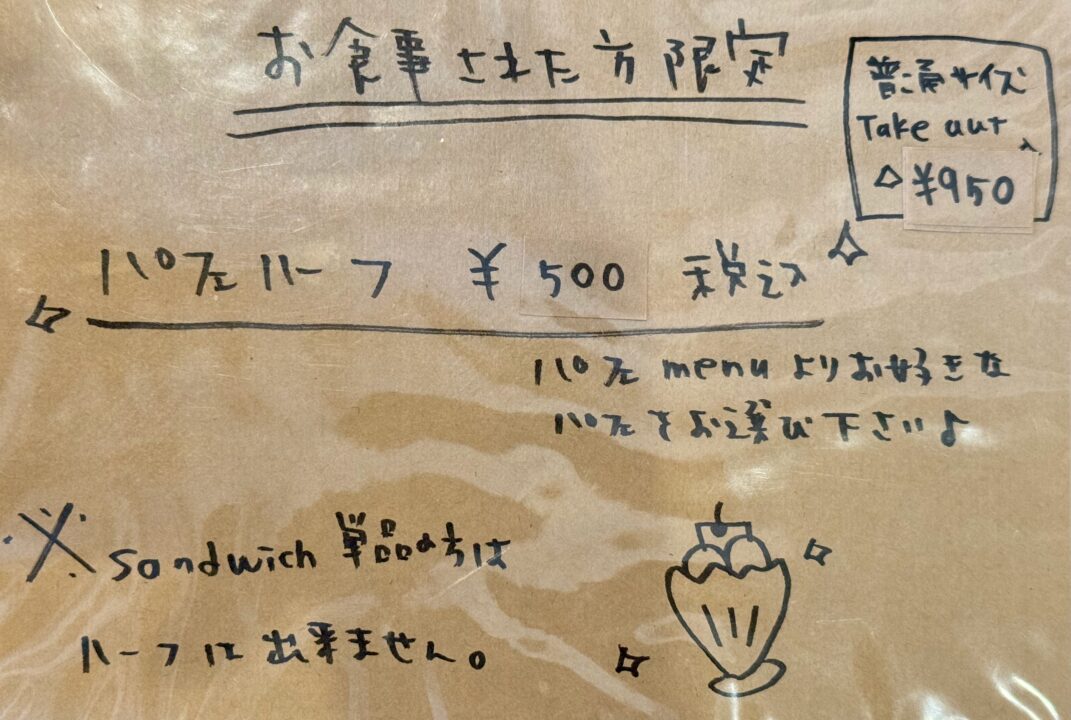 お食事された方限定
普通サイズ
Take out
¥950
パフェハーフ ¥500 税込
パフェ menuよりお好きな
パフェをお選び下さい♪
※sandwich 単品の方は
ハーフは出来ません。